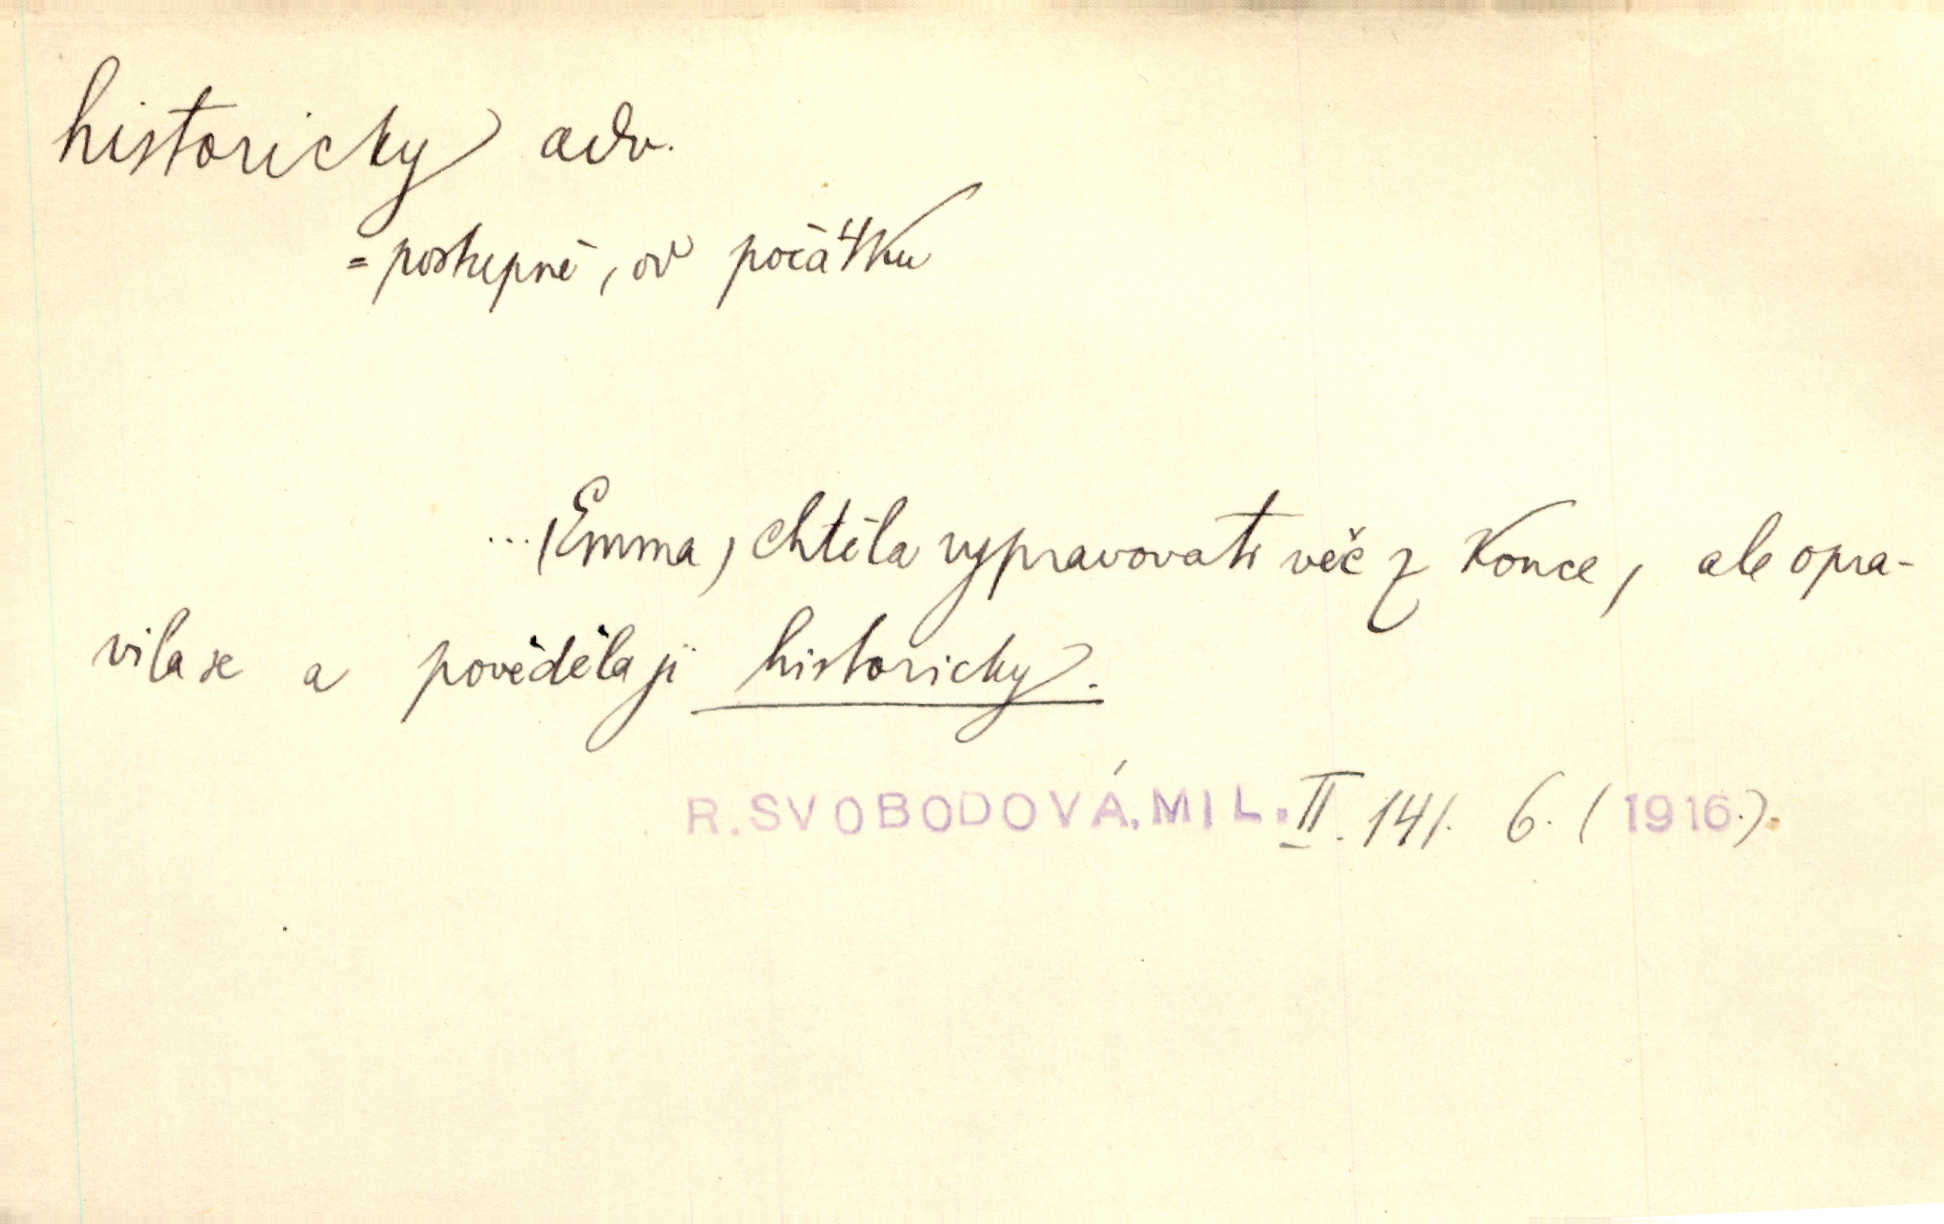 historicky adv.
= postupně, od počátku
... (Emma) chtěla vypravovati věc z konce, ale opra-
vila se a pověděla ji historicky.
R. SVOBODOVÁ, MIL. II. 141. 6. (1916.).